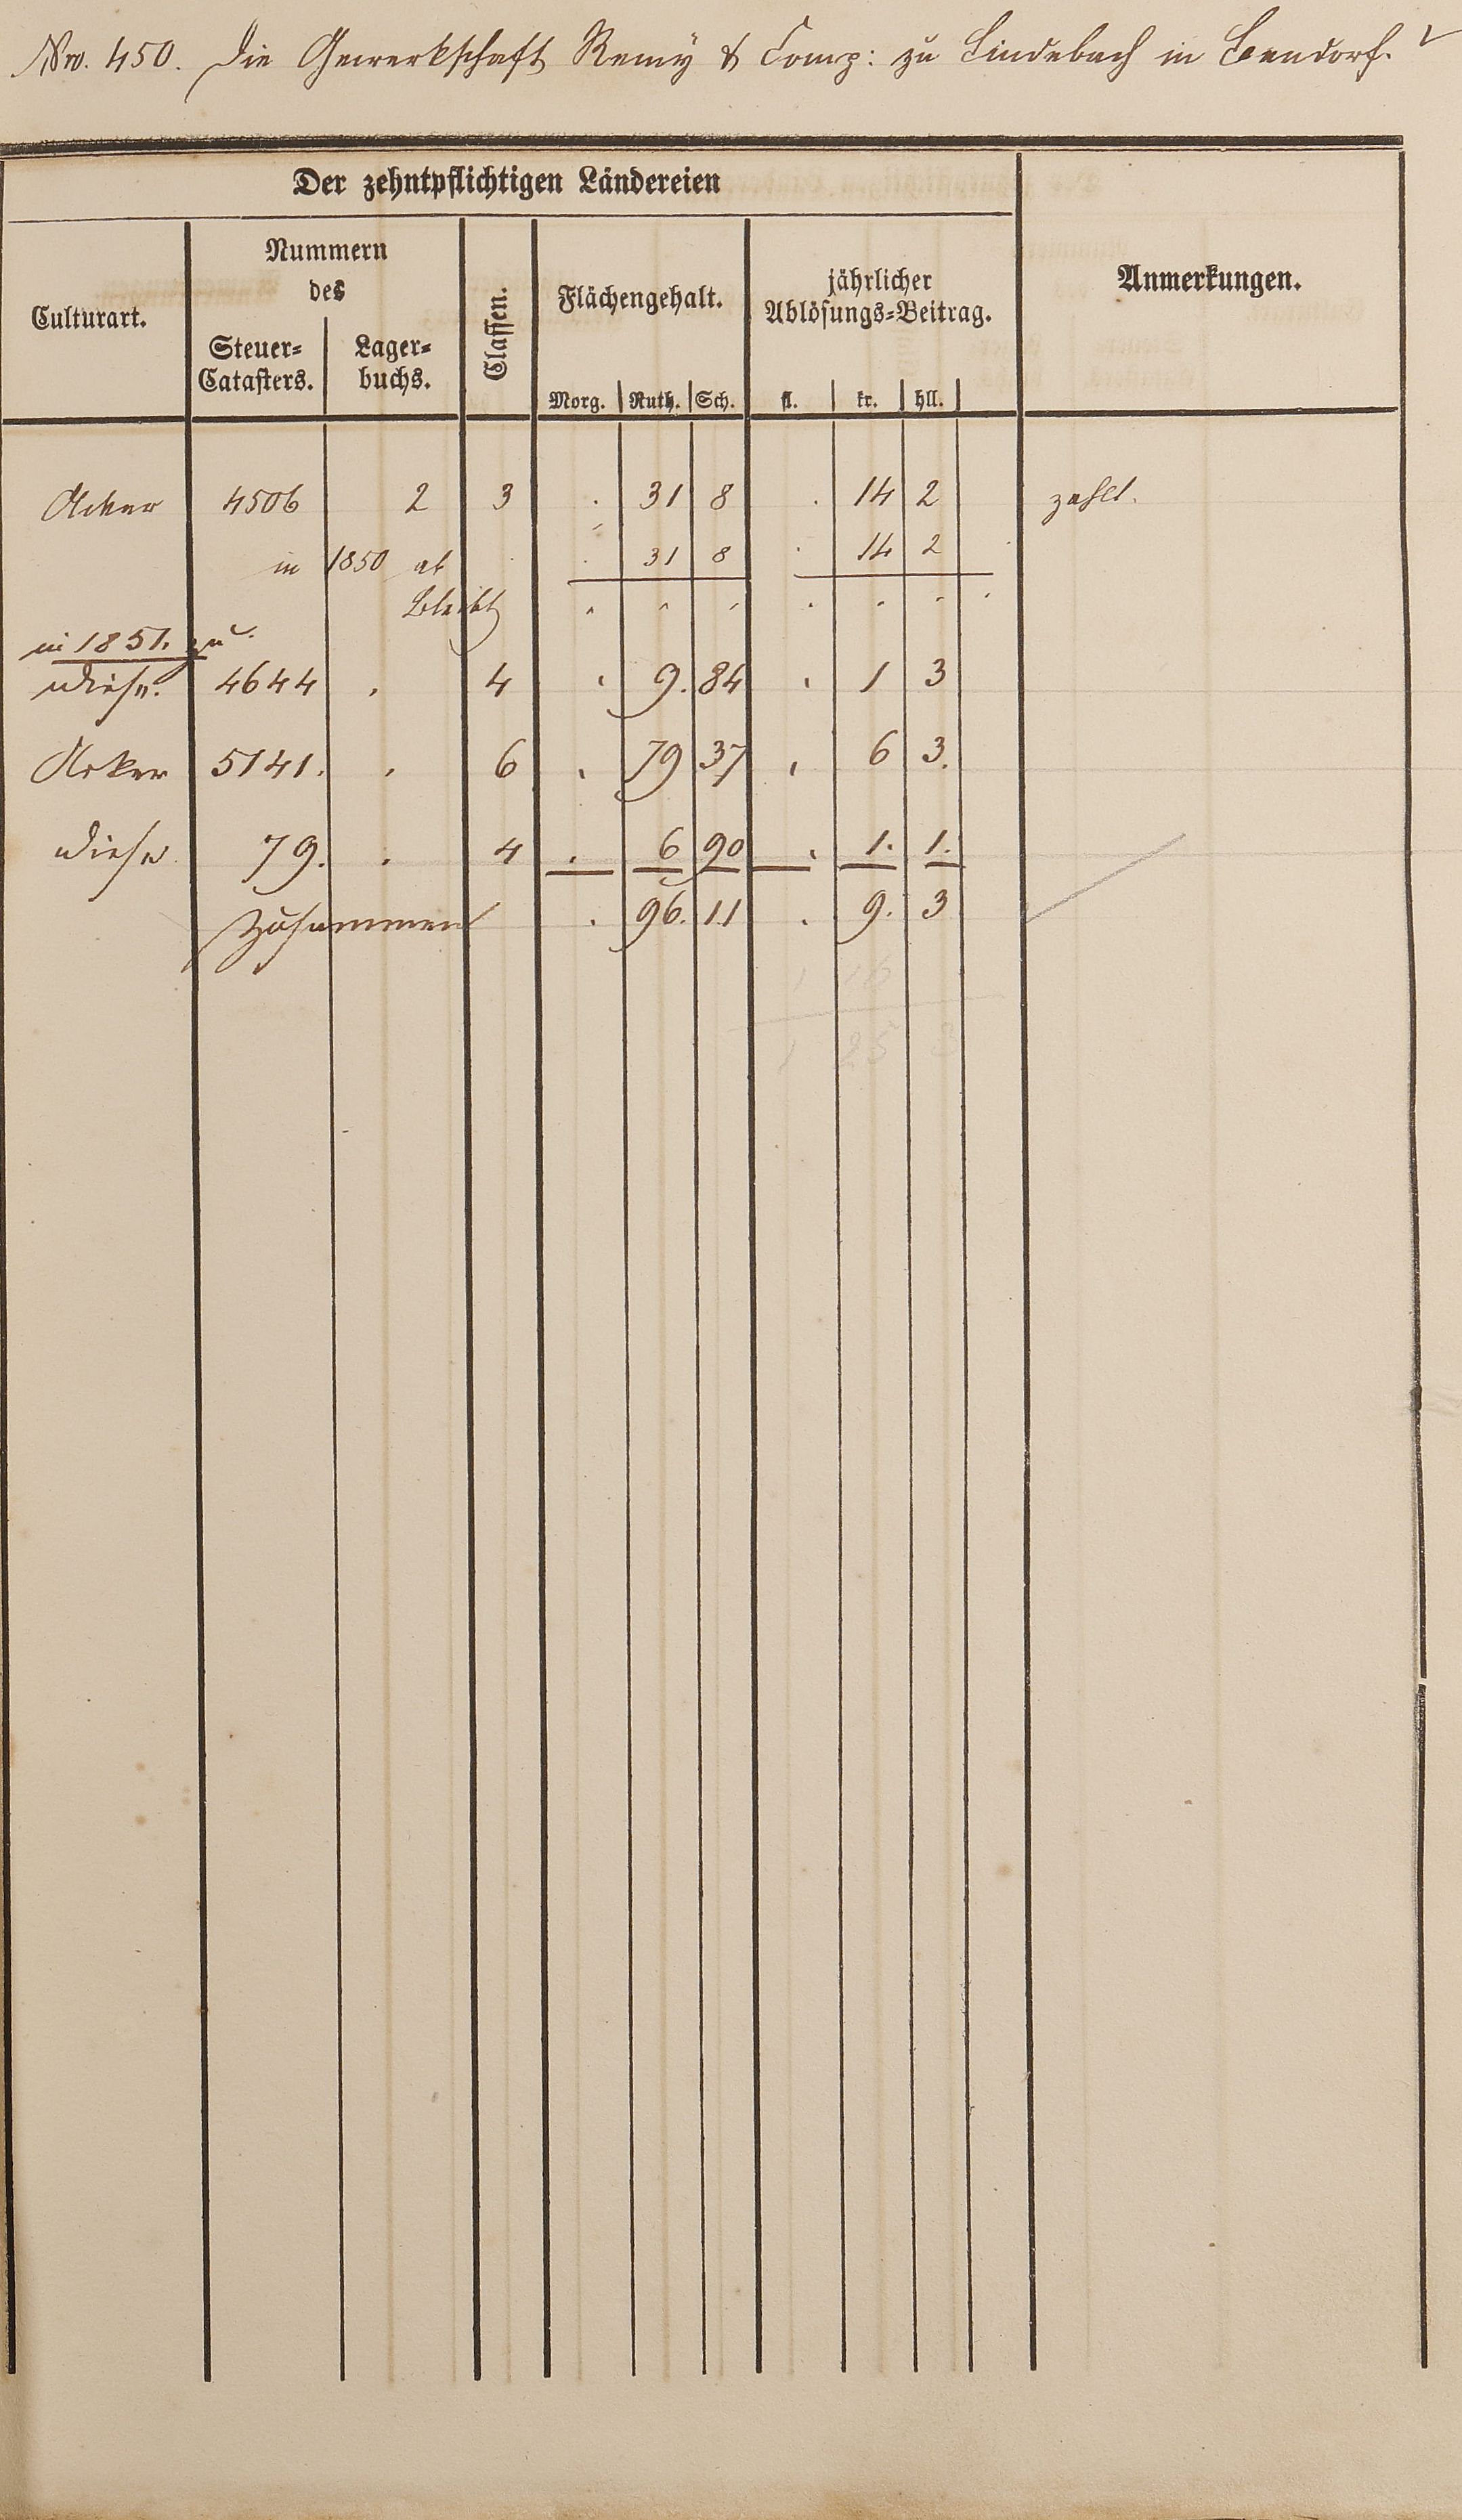 Nro. 450. Die Gewerkschaft Remÿ & Comp: zu Lindebach in Bendorf.
Der zehntpflichtigen Ländereien
Culturart.
Nummern
des
Steuer=
Catasters.
Lager=
buchs.
Classen.
Flächengehalt.
Morg. Ruth. Sch.
jährlicher
Ablösungs=Beitrag.
fl. kr. hll.
Anmerkungen.
Acker 4506 2 3 . 31 8 . 14 2 zahlt.
in 1850 ab . 31 8 . 14 2
bleibt
in 1851. zu
Wiese. 4644 . 4 . 9. 84 . 1 3
Acker 5141. . 6 . 79 37 . 6 3.
Wiese 79. . 4 . 6 90 . 1. 1.
Zusammen . 96. 11 . 9. 3
1 16
1 25 3